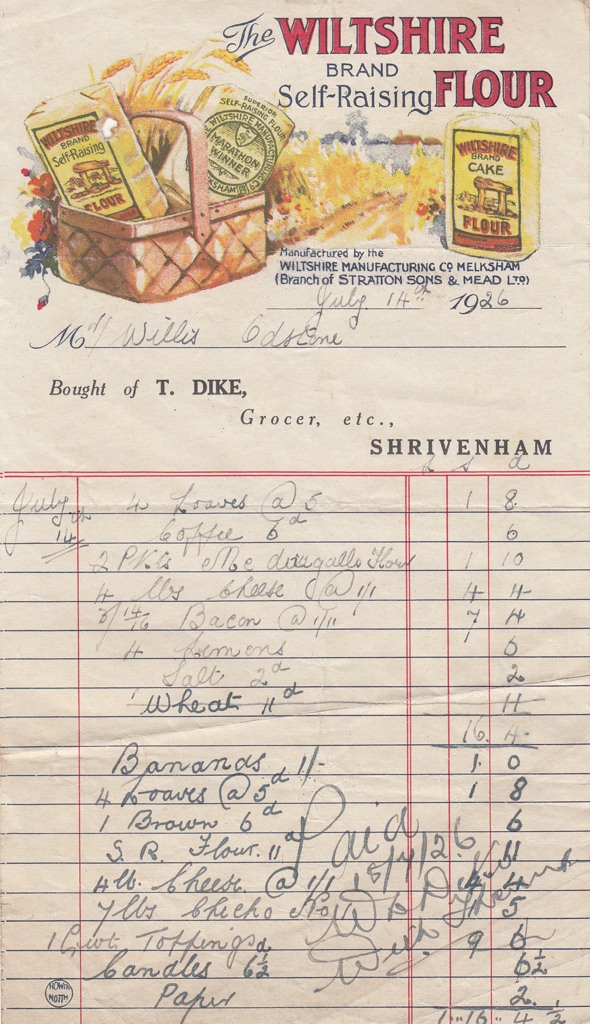 The WILTSHIRE
BRAND
Self-Raising FLOUR
WILTSHIRE
BRAND
Self-Raising
FLOUR
SUPERIOR
SELF-RAISING FLOUR
THE WILTSHIRE MANUFACTURING CO
MARATHON
WINNER
WILTSHIRE
BRAND
CAKE
FLOUR
Manufactured by the
WILTSHIRE MANUFACTURING CO MELKSHAM
(Branch of STRATTON SONS & MEAD LTD)
July 14th 1926
Mr Willis Edstone
Bought of T. DIKE,
Grocer, etc.,
SHRIVENHAM
£ s d
July 14th 4 Loaves @ 5 1 8
Coffee 6d 6
2 Pkts McDougalls Flour 1 10
4 lbs Cheese @ 1/1 4 4
3 14/16 Bacon @ 1/11 7 4
4 Lemons
Salt 2d 2
Wheat 11d 11
16 4
Bananas 1/- 1 0
4 Loaves @ 5d 1 8
1 Brown 6d 6
S. R. Flour 11d 11
4 lb. Cheese @ 1/1 4 4
7 lbs Chicko No 1 5
1 Cwt Toppings 9 6
Candles 6½d 6½
Paper 2
1 " 16 " 4 ½
Paid
15/7/26
W Dike
With Thanks